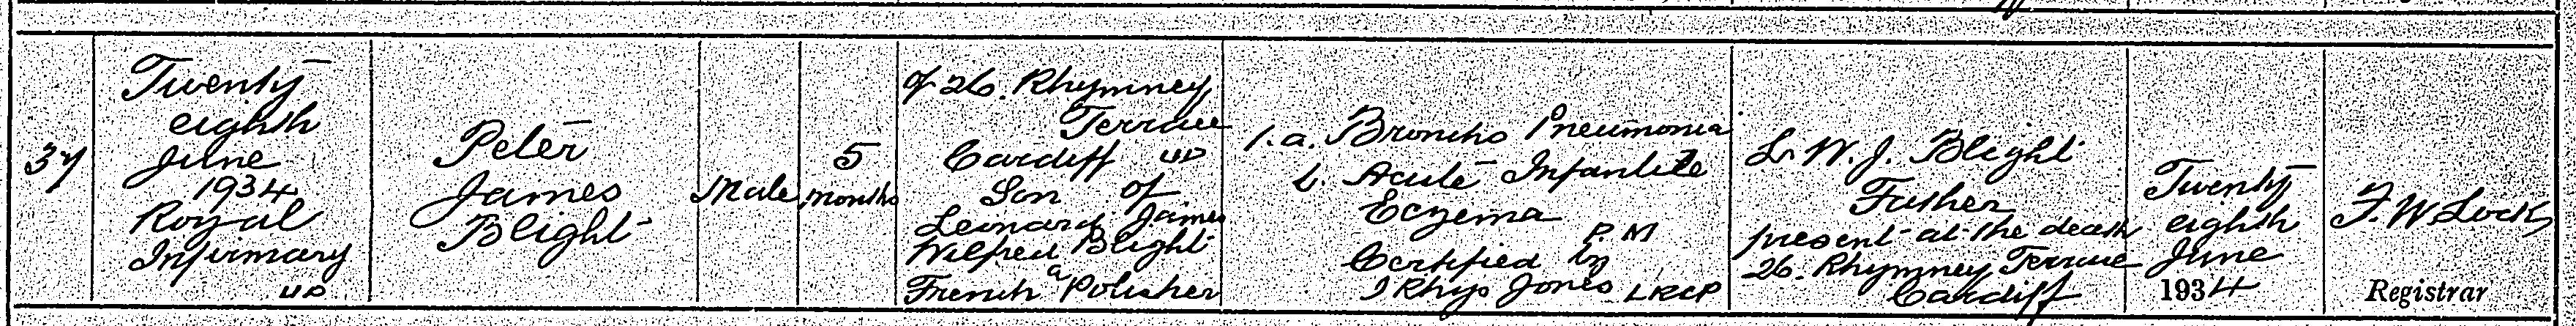 37
Twenty
eighth
June
1934
Royal
Infirmary
UD
Peter
James
Blight
Male
5
months
of 26. Rhymney
Terrace
Cardiff UD
Son of
Leonard James
Wilfred Blight
a
French Polisher
1. a. Broncho Pneumonia
b. Acute Infantile
Eczema
P.M
Certified by
J Rhys Jones LRCP
L. W. J. Blight
Father
present at the death
26. Rhymney Terrace
Cardiff
Twenty
eighth
June
1934
F. W. Lock
Registrar